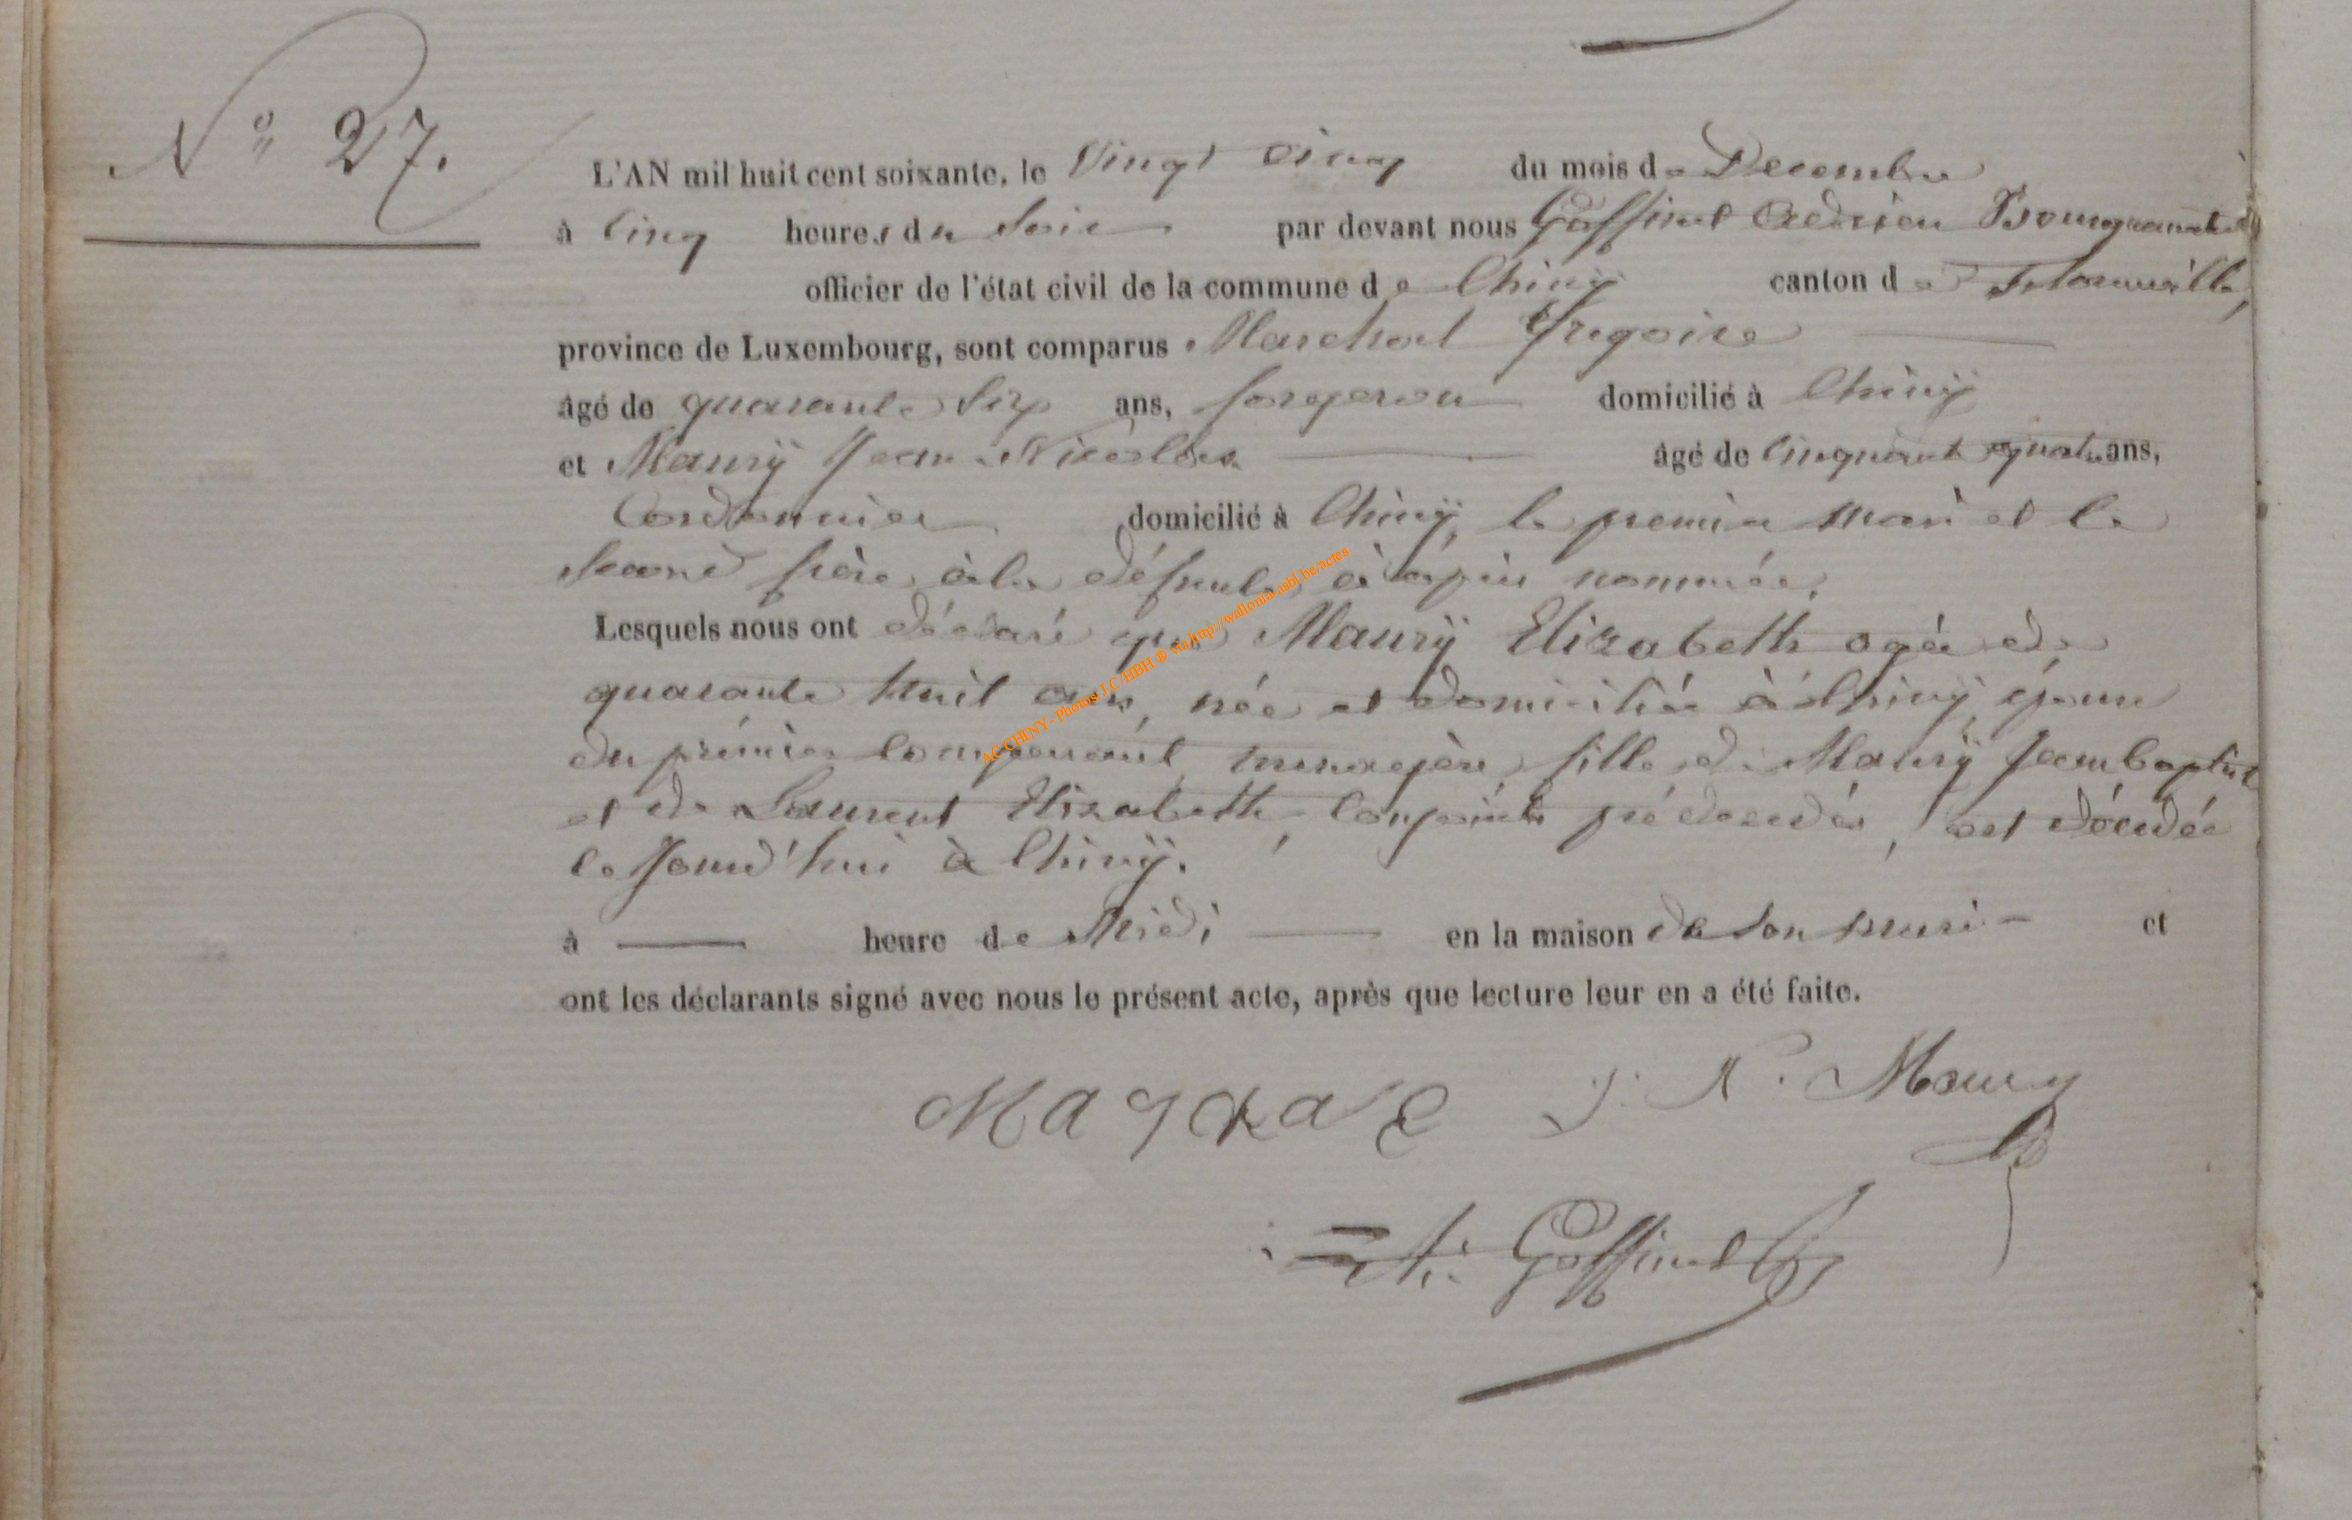 N° 27.
L'AN mil huit cent soixante, le Vingt Cinq du mois de Decembre
à Cinq heures du Soir par devant nous Goffinet Adrien Bourgmestre
officier de l'état civil de la commune de Chinÿ canton de Florenville,
province de Luxembourg, sont comparus Marchal Gregoire
âgé de quarante Six ans, forgeron domicilié à Chinÿ
et Maurÿ Jean Nicolas âgé de Cinquante quatre ans,
Cordonnier domicilié à Chinÿ, le premier mari et le
Second frère à la défunte ci après nommée.
Lesquels nous ont déclaré que Maurÿ Elizabeth agée de
quarante huit ans, née et domiciliée à Chinÿ, épouse
du prémier Comparant, menagère, fille de Maurÿ Jean baptiste
et de Laurent Elizabeth, Conjoints prédécédés, est décédée
ce Jourd'hui à Chinÿ.
à heure de Midi en la maison de Son mari et
ont les déclarants signé avec nous le présent acte, après que lecture leur en a été faite.
J. N. Maury
A. Goffinet
AC CHINY - Photos J.C/HBH © via http://wallonia-asbl.be/actes